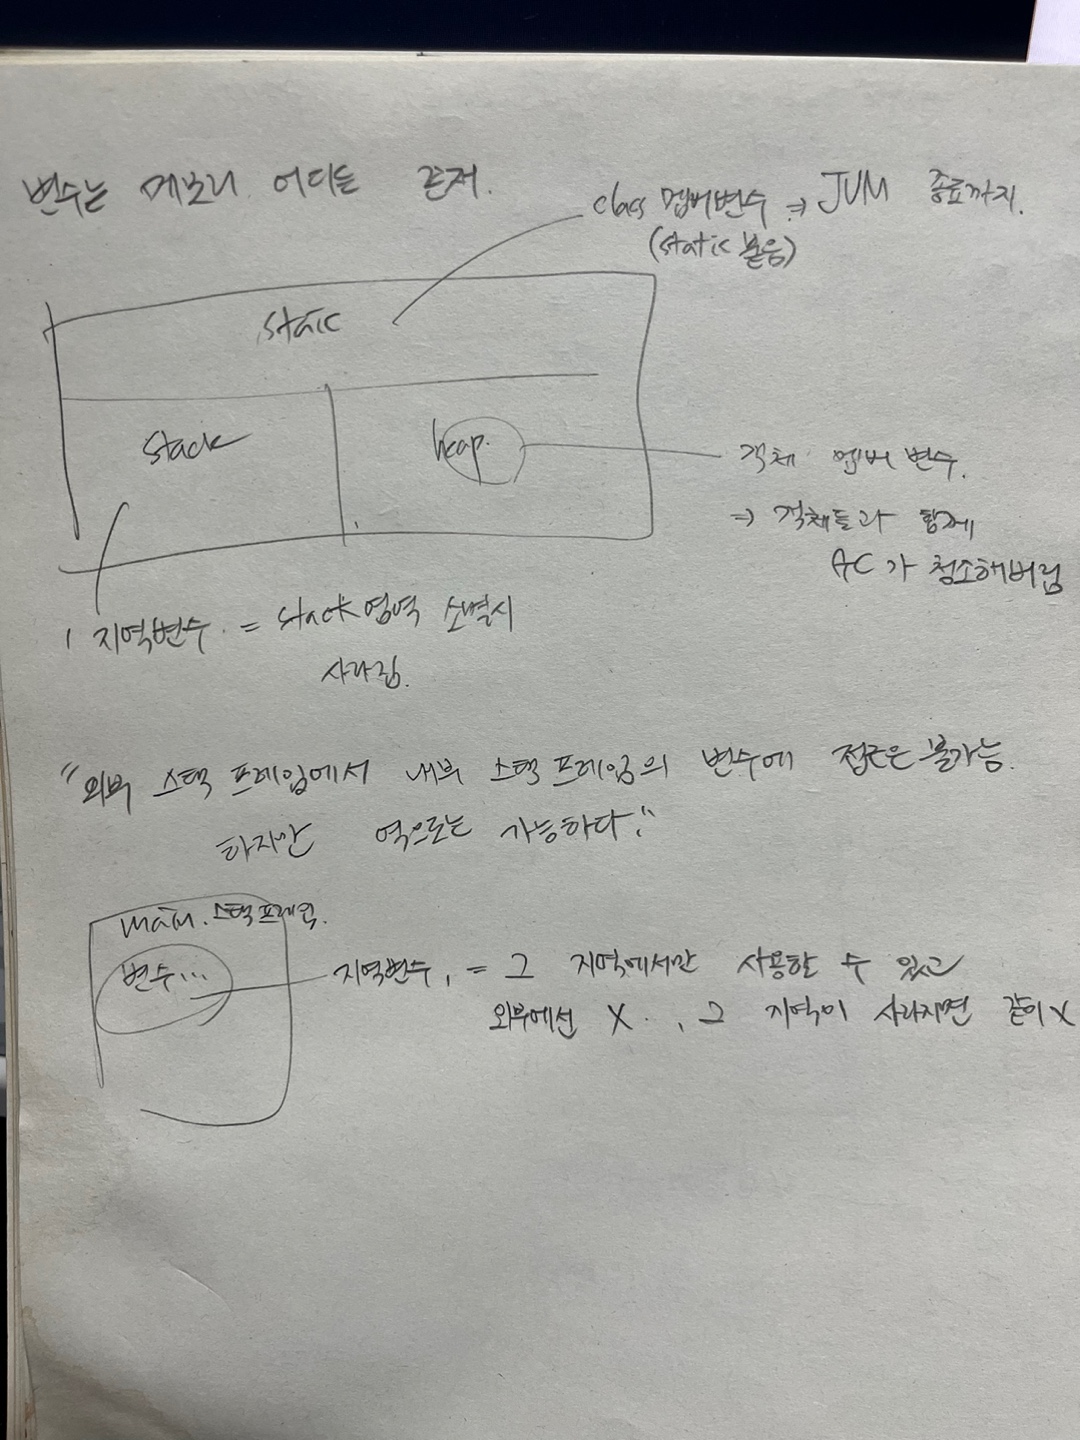 변수는 메모리 어디든 존재.
class 멤버변수 ⇒ JVM 종료까지.
(static 붙음)
static
stack
heap.
객체 멤버 변수.
⇒ 객체들과 함께
GC가 청소해버림
지역변수. = stack영역 소멸시
사라짐.
"외부 스택 프레임에서 내부 스택 프레임의 변수에 접근은 불가능.
하지만 역으로는 가능하다."
main. 스택프레임.
변수...
지역변수, = 그 지역에서만 사용할 수 있고
외부에선 X., 그 지역이 사라지면 같이X